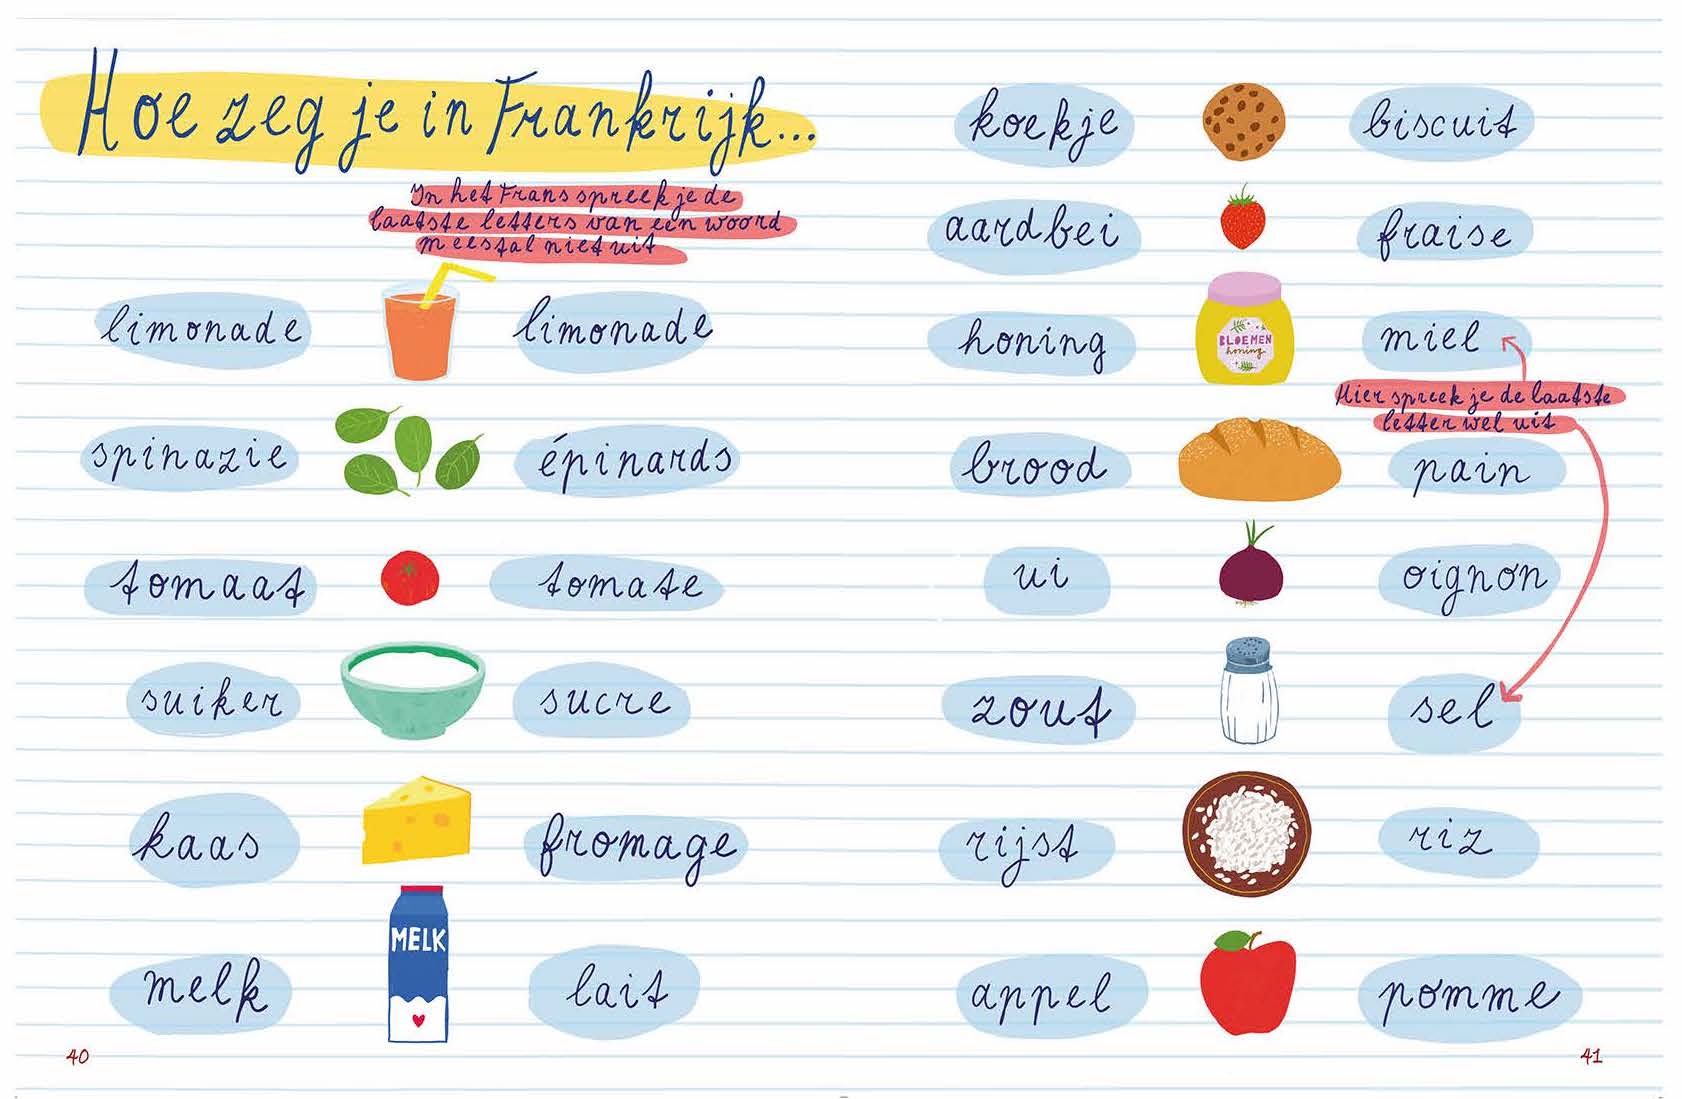 Hoe zeg je in Frankrijk...
In het Frans spreek je de
laatste letters van een woord
meestal niet uit
limonade limonade
spinazie épinards
tomaat tomate
suiker sucre
kaas fromage
MELK
melk lait
40
koekje biscuit
aardbei fraise
honing BLOEMEN miel
honing
Hier spreek je de laatste
letter wel uit
brood pain
ui oignon
zout sel
rijst riz
appel pomme
41